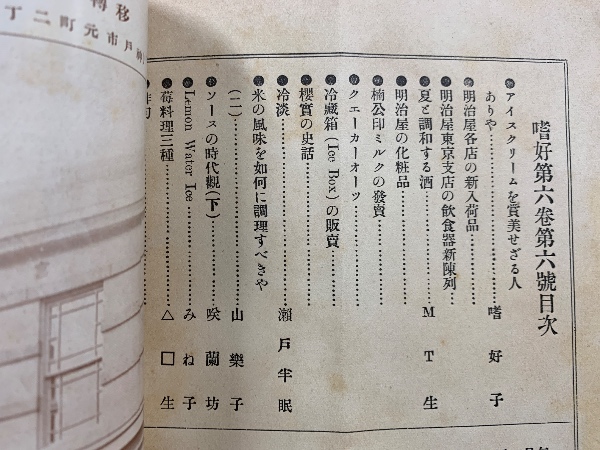 嗜好第六卷第六號目次
●アイスクリームを賞美せざる人
ありや……………嗜好子
●明治屋各店の新入荷品……………
●明治屋東京支店の飲食器新陳列……
●夏と調和する酒……………MT生
●明治屋の化粧品……………
●楠公印ミルクの發賣……………
●クエーカーオーツ……………
●冷藏箱(Ice Box)の販賣……………
●櫻實の史話……………
●冷淡……………瀬戸半眠
●氷の風味を如何に調理すべきや
(二)……………山樂子
●ソースの時代觀(下)……………咲蘭坊
●Lemon Water Ice……………みね子
●苺料理三種……………△□生
移轉
戸市元町二丁